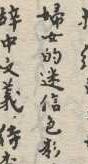 婦女的迷信色彩
辞中文義，侍